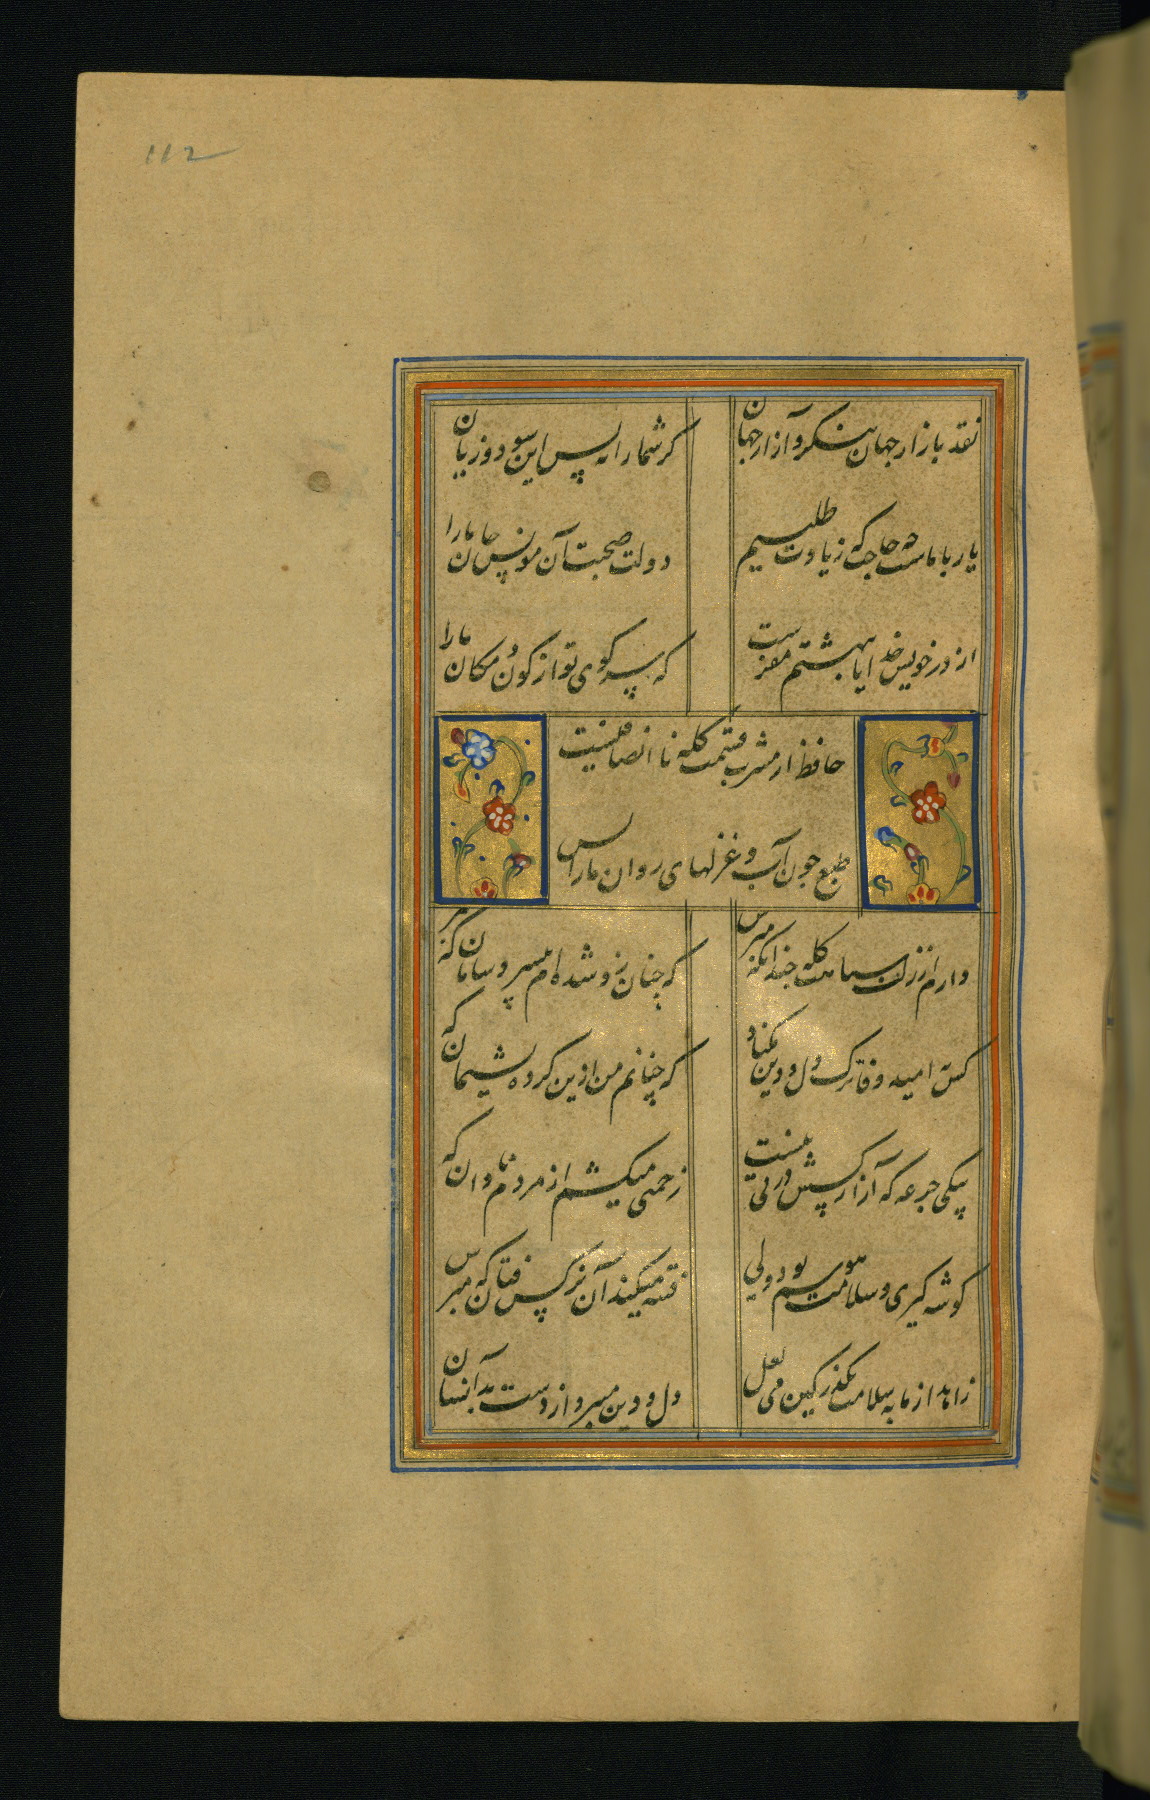 112
نقد بازار جهان بنکر و آزار جهان
کر شمارا نه پس این سود و زیان
یار با ماست چه حاجت که زیادت طلبیم
دولت صحبت آن مونس جان مارا
از در خویش خدایا ببهشتم مفرست
که سر کوی تو از کون و مکان مارا
حافظ از مشرب قسمت کله نا انصافیست
طبع چون آب و غزلهای روان مارا بس
دارم از زلف سیاهت کله چندانکه مپرس
که چنان زو شده ام بیسر و سامان که
کس به امید وفا ترک دل و دین مکناد
که چنانم من ازین کرده پشیمان که
بیکی جرعه که آزار کسش در پی نیست
زحمتی میکشم از مردم نادان که
کوشه کیری و سلامت هوسم بود ولی
فتنه میکند آن نرکس فتان که مپرس
زاهد از ما به سلامت بکذر کین می لعل
دل و دین میبرد از دست بدآنسان